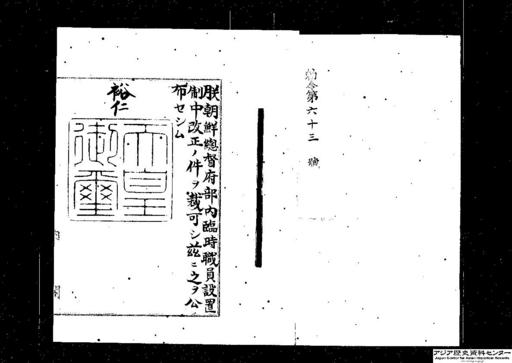 勅令第六十三號
朕朝鮮總督府部內臨時職員設置
制中改正ノ件ヲ裁可シ茲ニ之ヲ公
布セシム
裕仁
天皇御璽
内閣
アジア歴史資料センター
Japan Center for Asian Historical Records